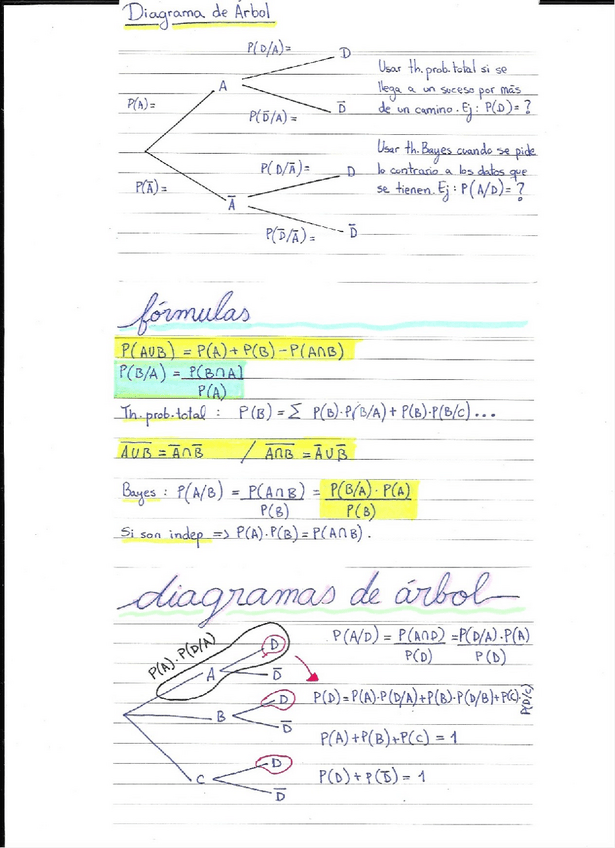 Diagrama de Árbol
P(D/A)=
D
Usar th. prob. total si se
llega a un suceso por más
de un camino. Ej: P(D) = ?
A
P(A)=
P(D̅/A) =
D̅
Usar th. Bayes cuando se pide
lo contrario a los datos que
se tienen. Ej: P(A/D) = ?
P(D/A̅)=
D
P(A̅)=
A̅
P(D̅/A̅) =
D̅
fórmulas
P(A∪B) = P(A) + P(B) - P(A∩B)
P(B/A) = P(B∩A)
P(A)
Th. prob. total : P(B) = Σ P(B)·P(B/A) + P(B)·P(B/C) ...
A̅∪̅B̅ = A̅∩B̅ / A̅∩̅B̅ = A̅∪B̅
Bayes : P(A/B) = P(A∩B) = P(B/A) · P(A)
P(B) P(B)
Si son indep => P(A).P(B) = P(A∩B).
diagramas de árbol
P(A)·P(D/A)
D
A
D̅
P(A/D) = P(A∩D) = P(D/A)·P(A)
P(D) P(D)
D
B
D̅
P(D) = P(A)·P(D/A) + P(B)·P(D/B) + P(C)·P(D/C)
P(A) + P(B) + P(C) = 1
D
C
D̅
P(D) + P(D̅) = 1